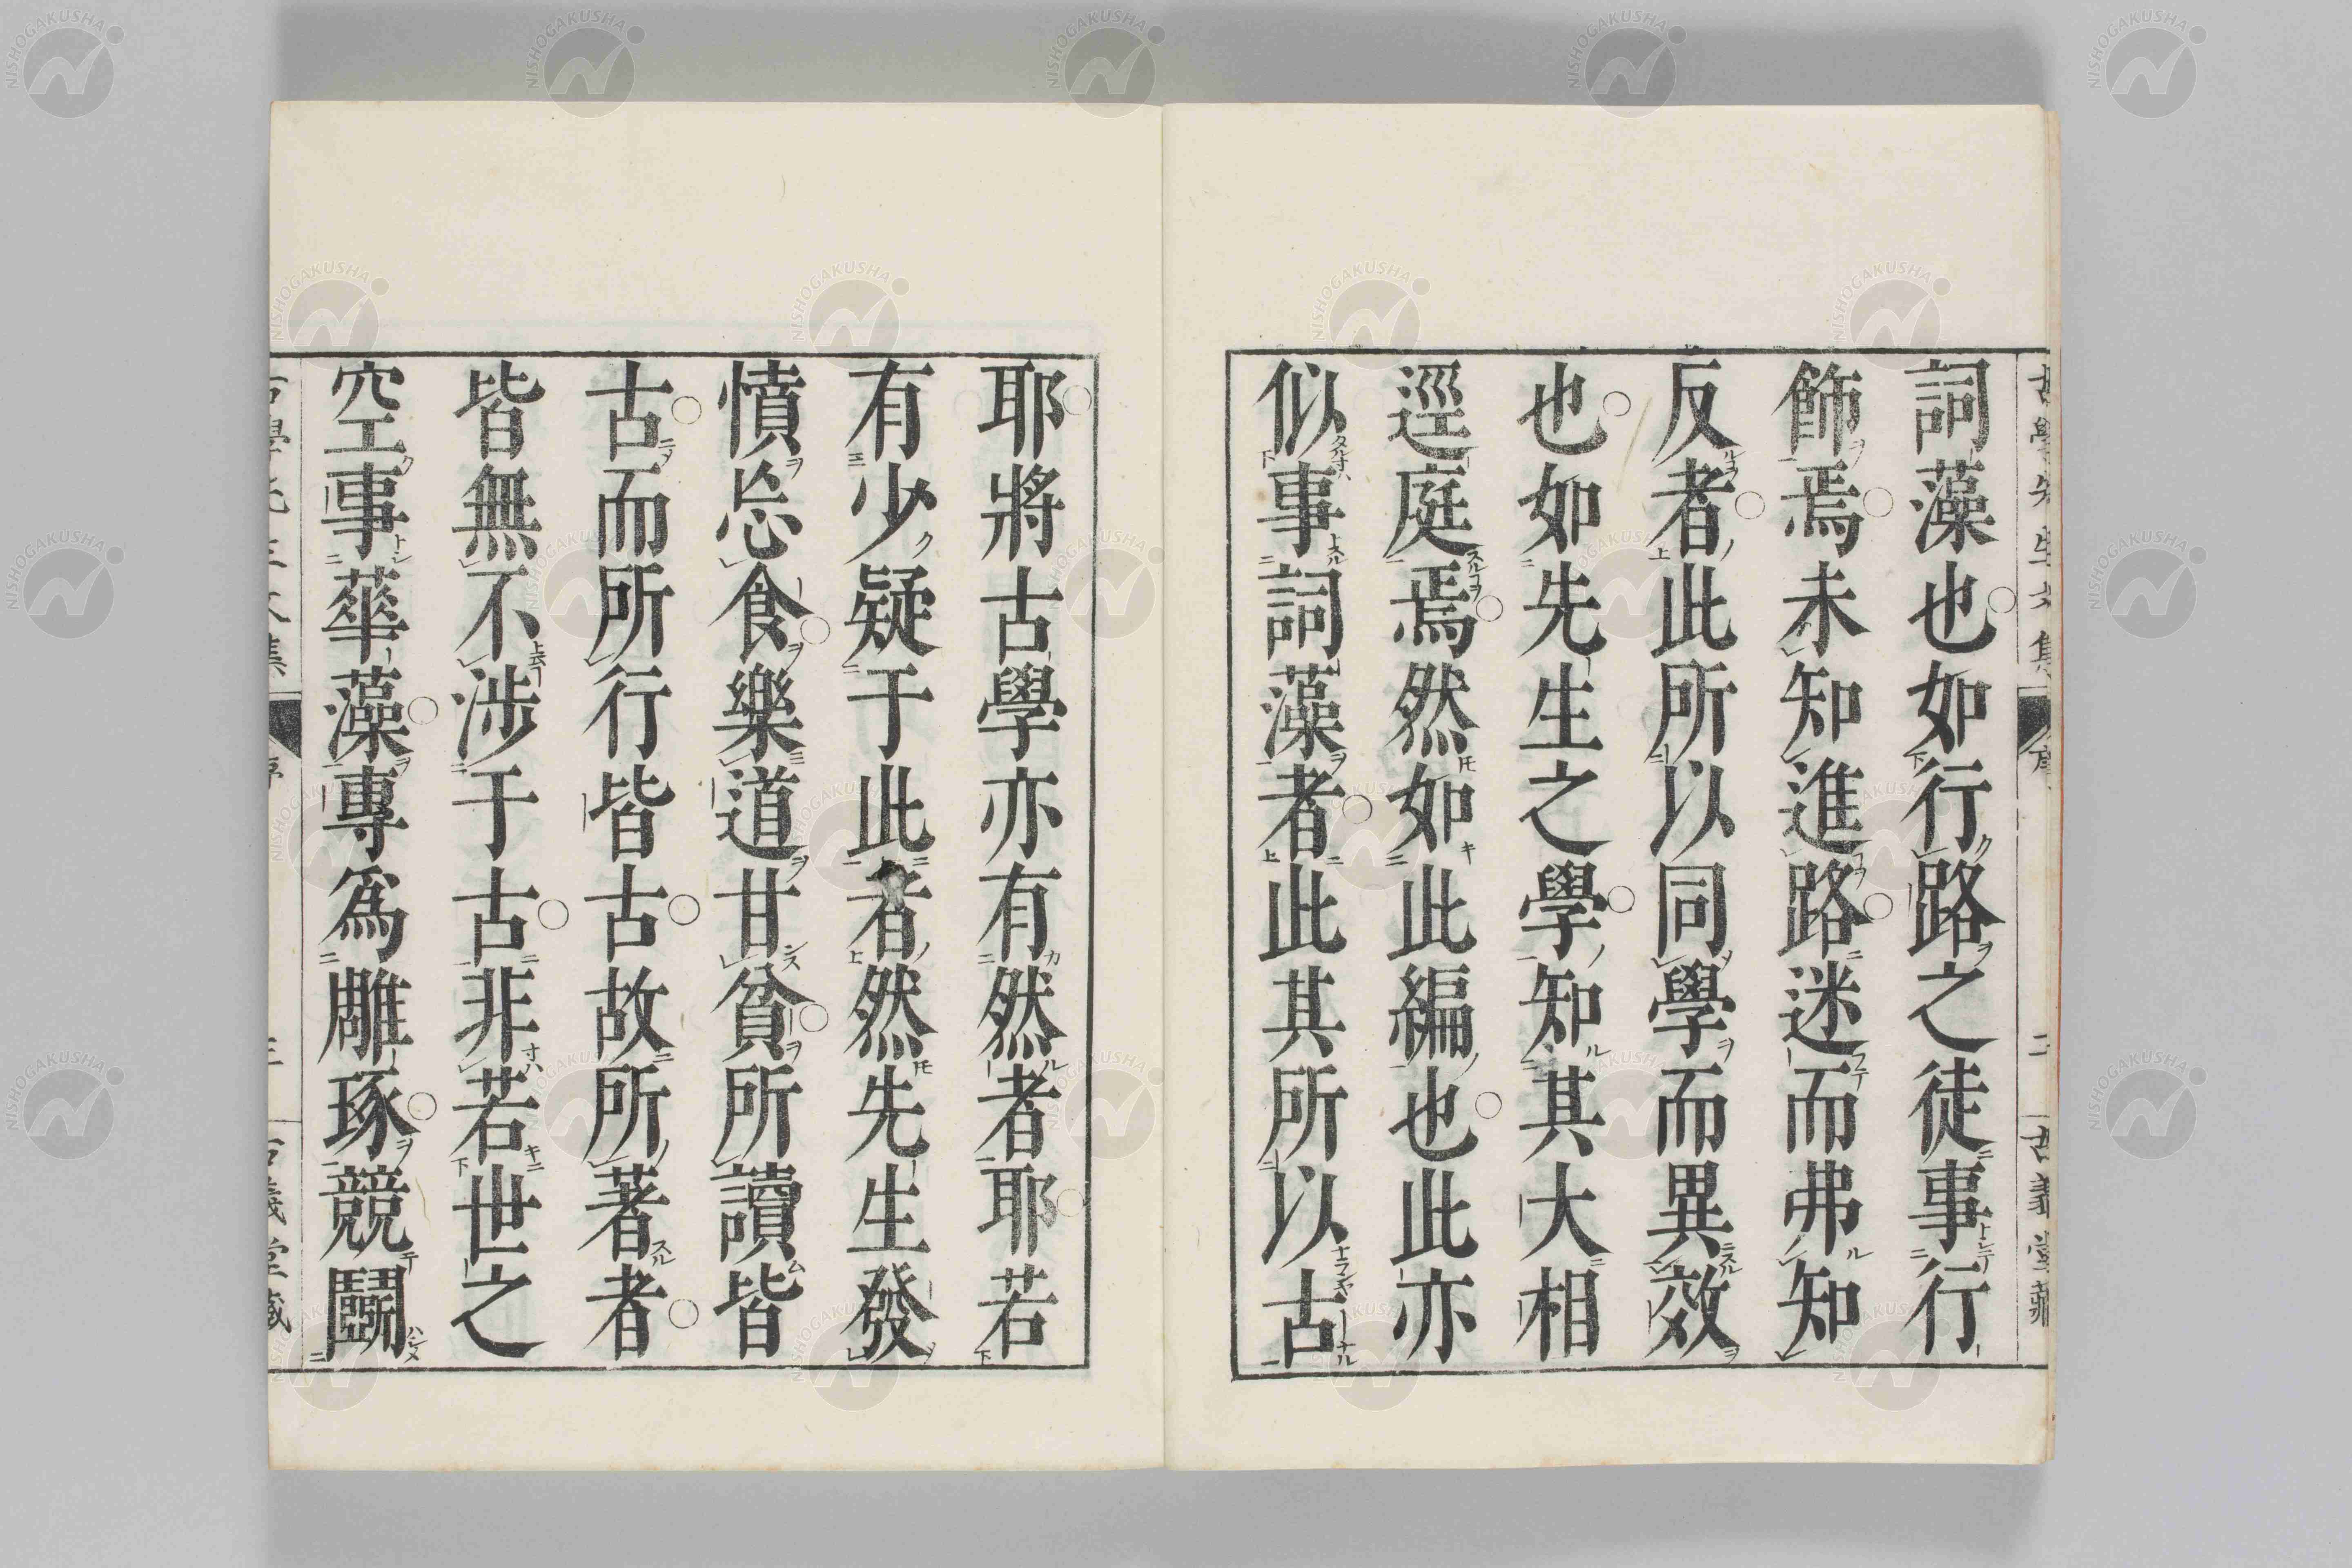 古學先生文集
序
二
古義堂藏
詞藻也如行路之徒事行
飾焉未知進路迷而弗知
反者此所以同學而異效
也如先生之學知其大相
逕庭焉然如此編也此亦
似事詞藻者此其所以古
耶將古學亦有然者耶若
有少疑于此者然先生發
憤忘食樂道甘貧所讀皆
古而所行皆古故所著者
皆無不涉于古非若世之
空事華藻專爲雕琢競鬪
NISHOGAKUSHA